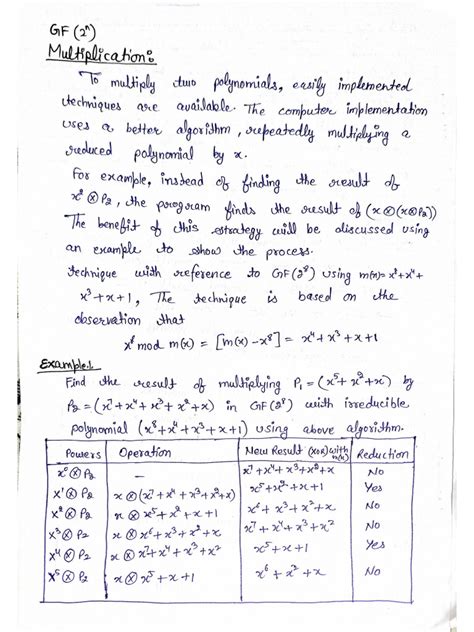 GF (2ⁿ)
Multiplication:
To multiply two polynomials, easily implemented
techniques are available. The computer implementation
uses a better algorithm, repeatedly multiplying a
reduced polynomial by x.
For example, instead of finding the result of
x² ⊗ P₂, the porogram finds the result of (x ⊗ (x ⊗ P₂))
The benefit of this strategy will be discussed using
an example to show the process.
technique with reference to GF(2⁸) using m(x) = x⁸+x⁴+
x³+x+1, The technique is based on the
observation that
x⁸ mod m(x) = [m(x) - x⁸] = x⁴+x³+x+1
Example.1
Find the result of multiplying P₁ = (x⁵+x²+x) by
P₂ = (x⁷+x⁴+x³+x²+x) in GF(2⁸) with irreducible
polynomial (x⁸+x⁴+x³+x+1) using above algorithm.
Powers Operation New Result (XOR) with m(x) Reduction
x⁰ ⊗ P₂ — x⁷+x⁴+x³+x²+x No
x¹ ⊗ P₂ x ⊗ (x⁷+x⁴+x³+x²+x) x⁵+x²+x+1 Yes
x² ⊗ P₂ x ⊗ x⁵+x²+x+1 x⁶+x³+x²+x No
x³ ⊗ P₂ x ⊗ x⁶+x³+x²+x x⁷+x⁴+x³+x² No
x⁴ ⊗ P₂ x ⊗ x⁷+x⁴+x³+x² x⁵+x+1 Yes
x⁵ ⊗ P₂ x ⊗ x⁵+x+1 x⁶+x²+x No